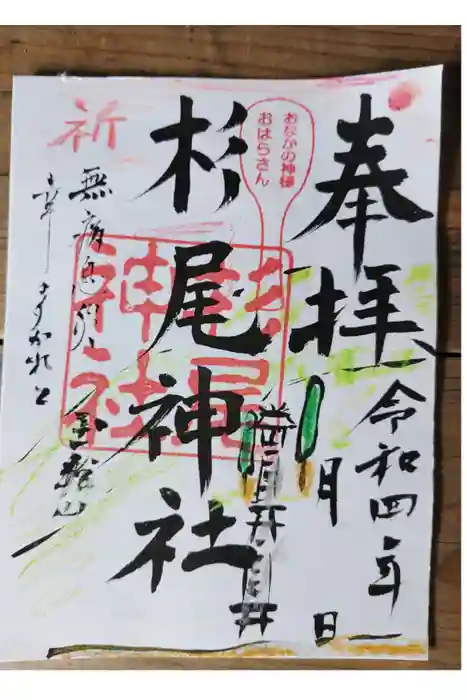 奉拝
令和四年
月
日
おなかの神様
おはらさん
杉尾神社
杉尾
神社
祈
無病息災
幸まずかれと